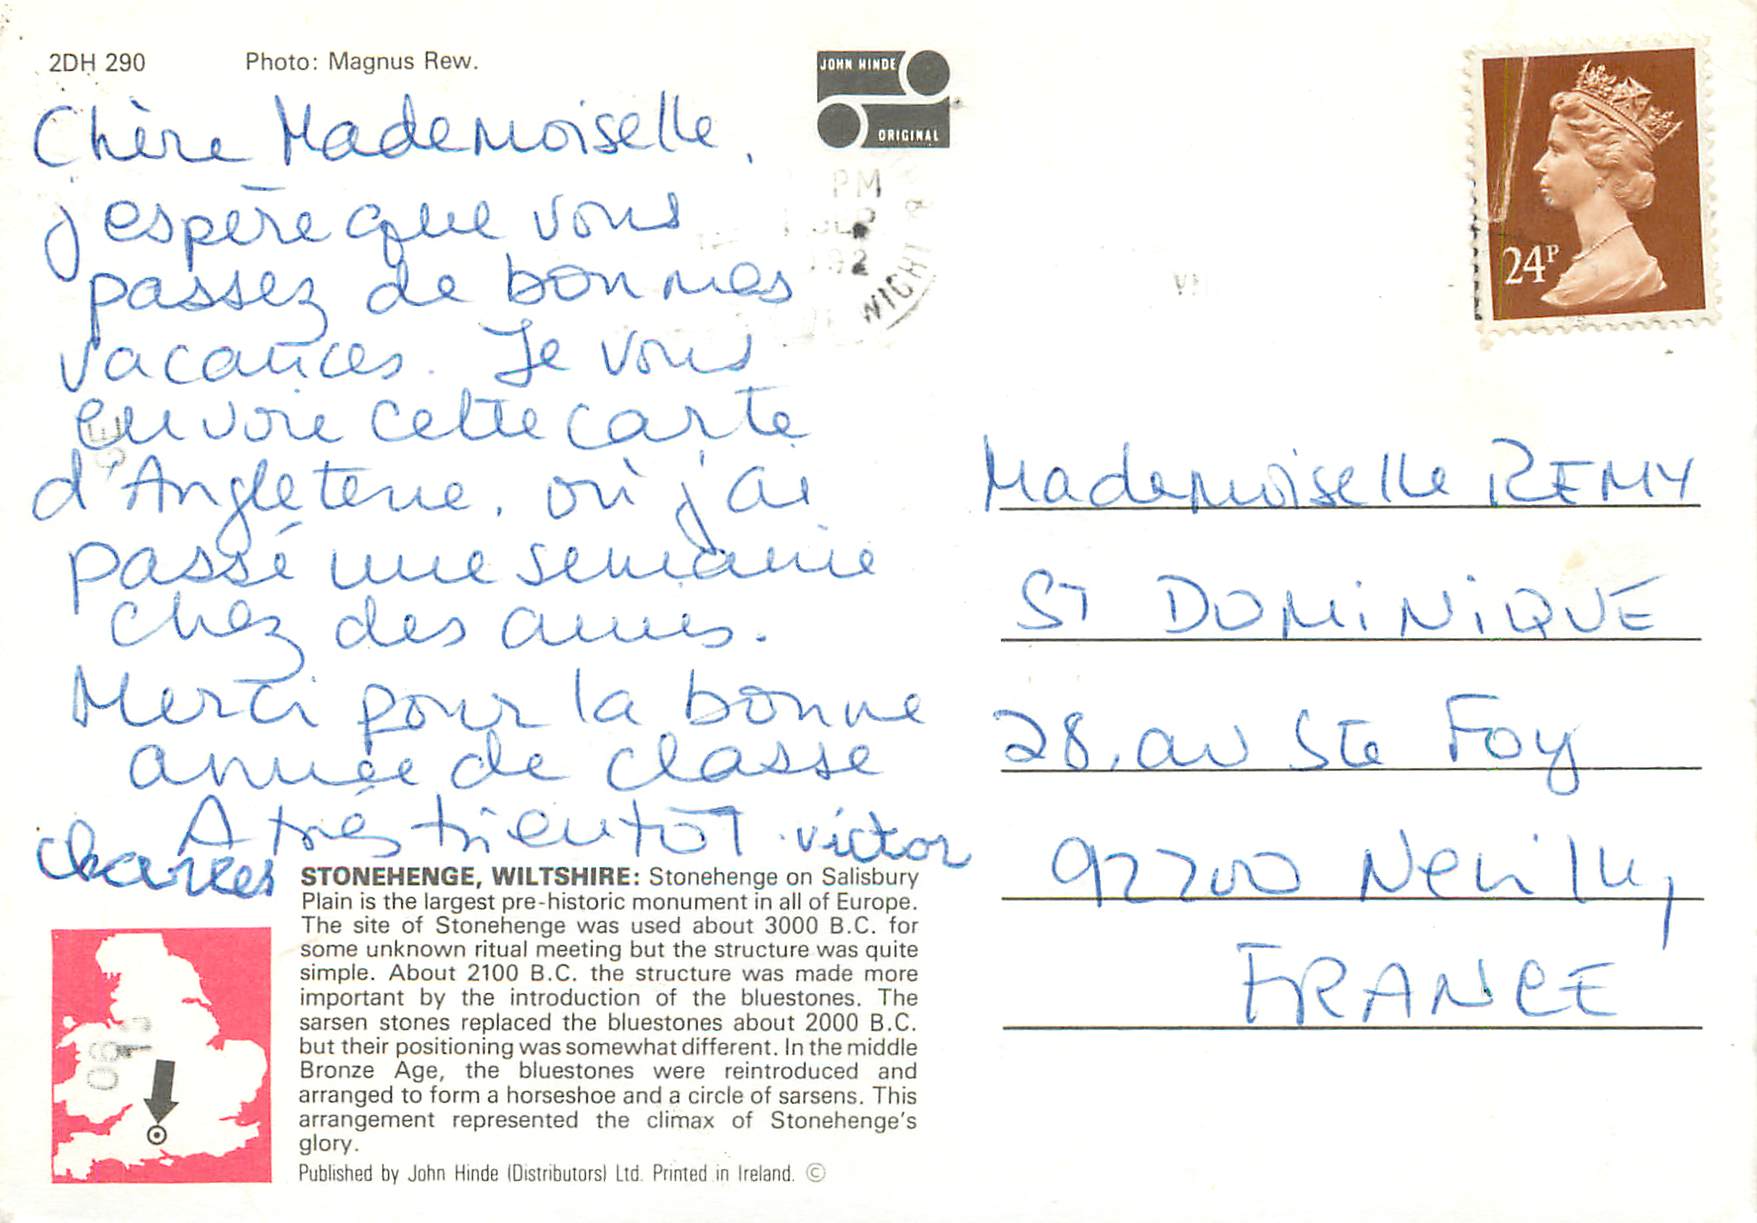 2DH 290 Photo: Magnus Rew.
JOHN HINDE
ORIGINAL
24P
PM
Chère Mademoiselle,
j'espère que vous
passez de bonnes
vacances. Je vous
envoie cette carte
d'Angleterre, où j'ai
passé une semaine
chez des amis.
Merci pour la bonne
année de classe
A très bientôt. victor
charles
STONEHENGE, WILTSHIRE: Stonehenge on Salisbury
Plain is the largest pre-historic monument in all of Europe.
The site of Stonehenge was used about 3000 B.C. for
some unknown ritual meeting but the structure was quite
simple. About 2100 B.C. the structure was made more
important by the introduction of the bluestones. The
sarsen stones replaced the bluestones about 2000 B.C.
but their positioning was somewhat different. In the middle
Bronze Age, the bluestones were reintroduced and
arranged to form a horseshoe and a circle of sarsens. This
arrangement represented the climax of Stonehenge's
glory.
Published by John Hinde (Distributors) Ltd. Printed in Ireland. ©
Mademoiselle REMY
ST DOMINIQUE
28, av Ste Foy
92200 Neuilly
FRANCE